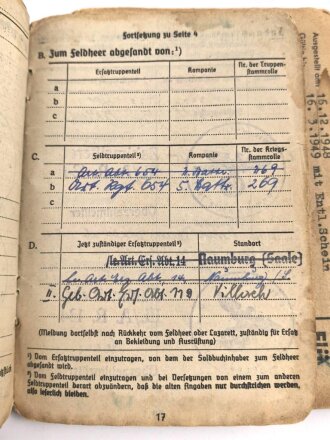 Fortsetzung zu Seite 4
B. Zum Feldheer abgesandt von:¹)
Ersatztruppenteil Kompanie Nr. der Truppen-
stammrolle
a
b
c
C. Feldtruppenteil²) Kompanie Nr. der Kriegs-
stammrolle
a Art. Abt. 654 269
b Art. Rgt. 654 5. Battr. 269
c
D. Jetzt zuständiger Ersatztruppenteil³) Standort
Naumburg (Saale)
Naumburg
Geb. Art. Ers. Abt. 112 Villach
(Meldung dortselbst nach Rückkehr vom Feldheer oder Lazarett, zuständig für Ersatz
an Bekleidung und Ausrüstung)
¹) Vom Ersatztruppenteil einzutragen, von dem der Soldbuchinhaber zum Feldheer
abgesandt wird.
²) Vom Feldtruppenteil einzutragen und bei Versetzungen von einem zum anderen
Feldtruppenteil derart abzuändern, daß die alten Angaben nur durchstrichen werden,
also leserlich bleiben.
17
Ausgestellt am 15.12.1948
1949 mit Entl.Schein